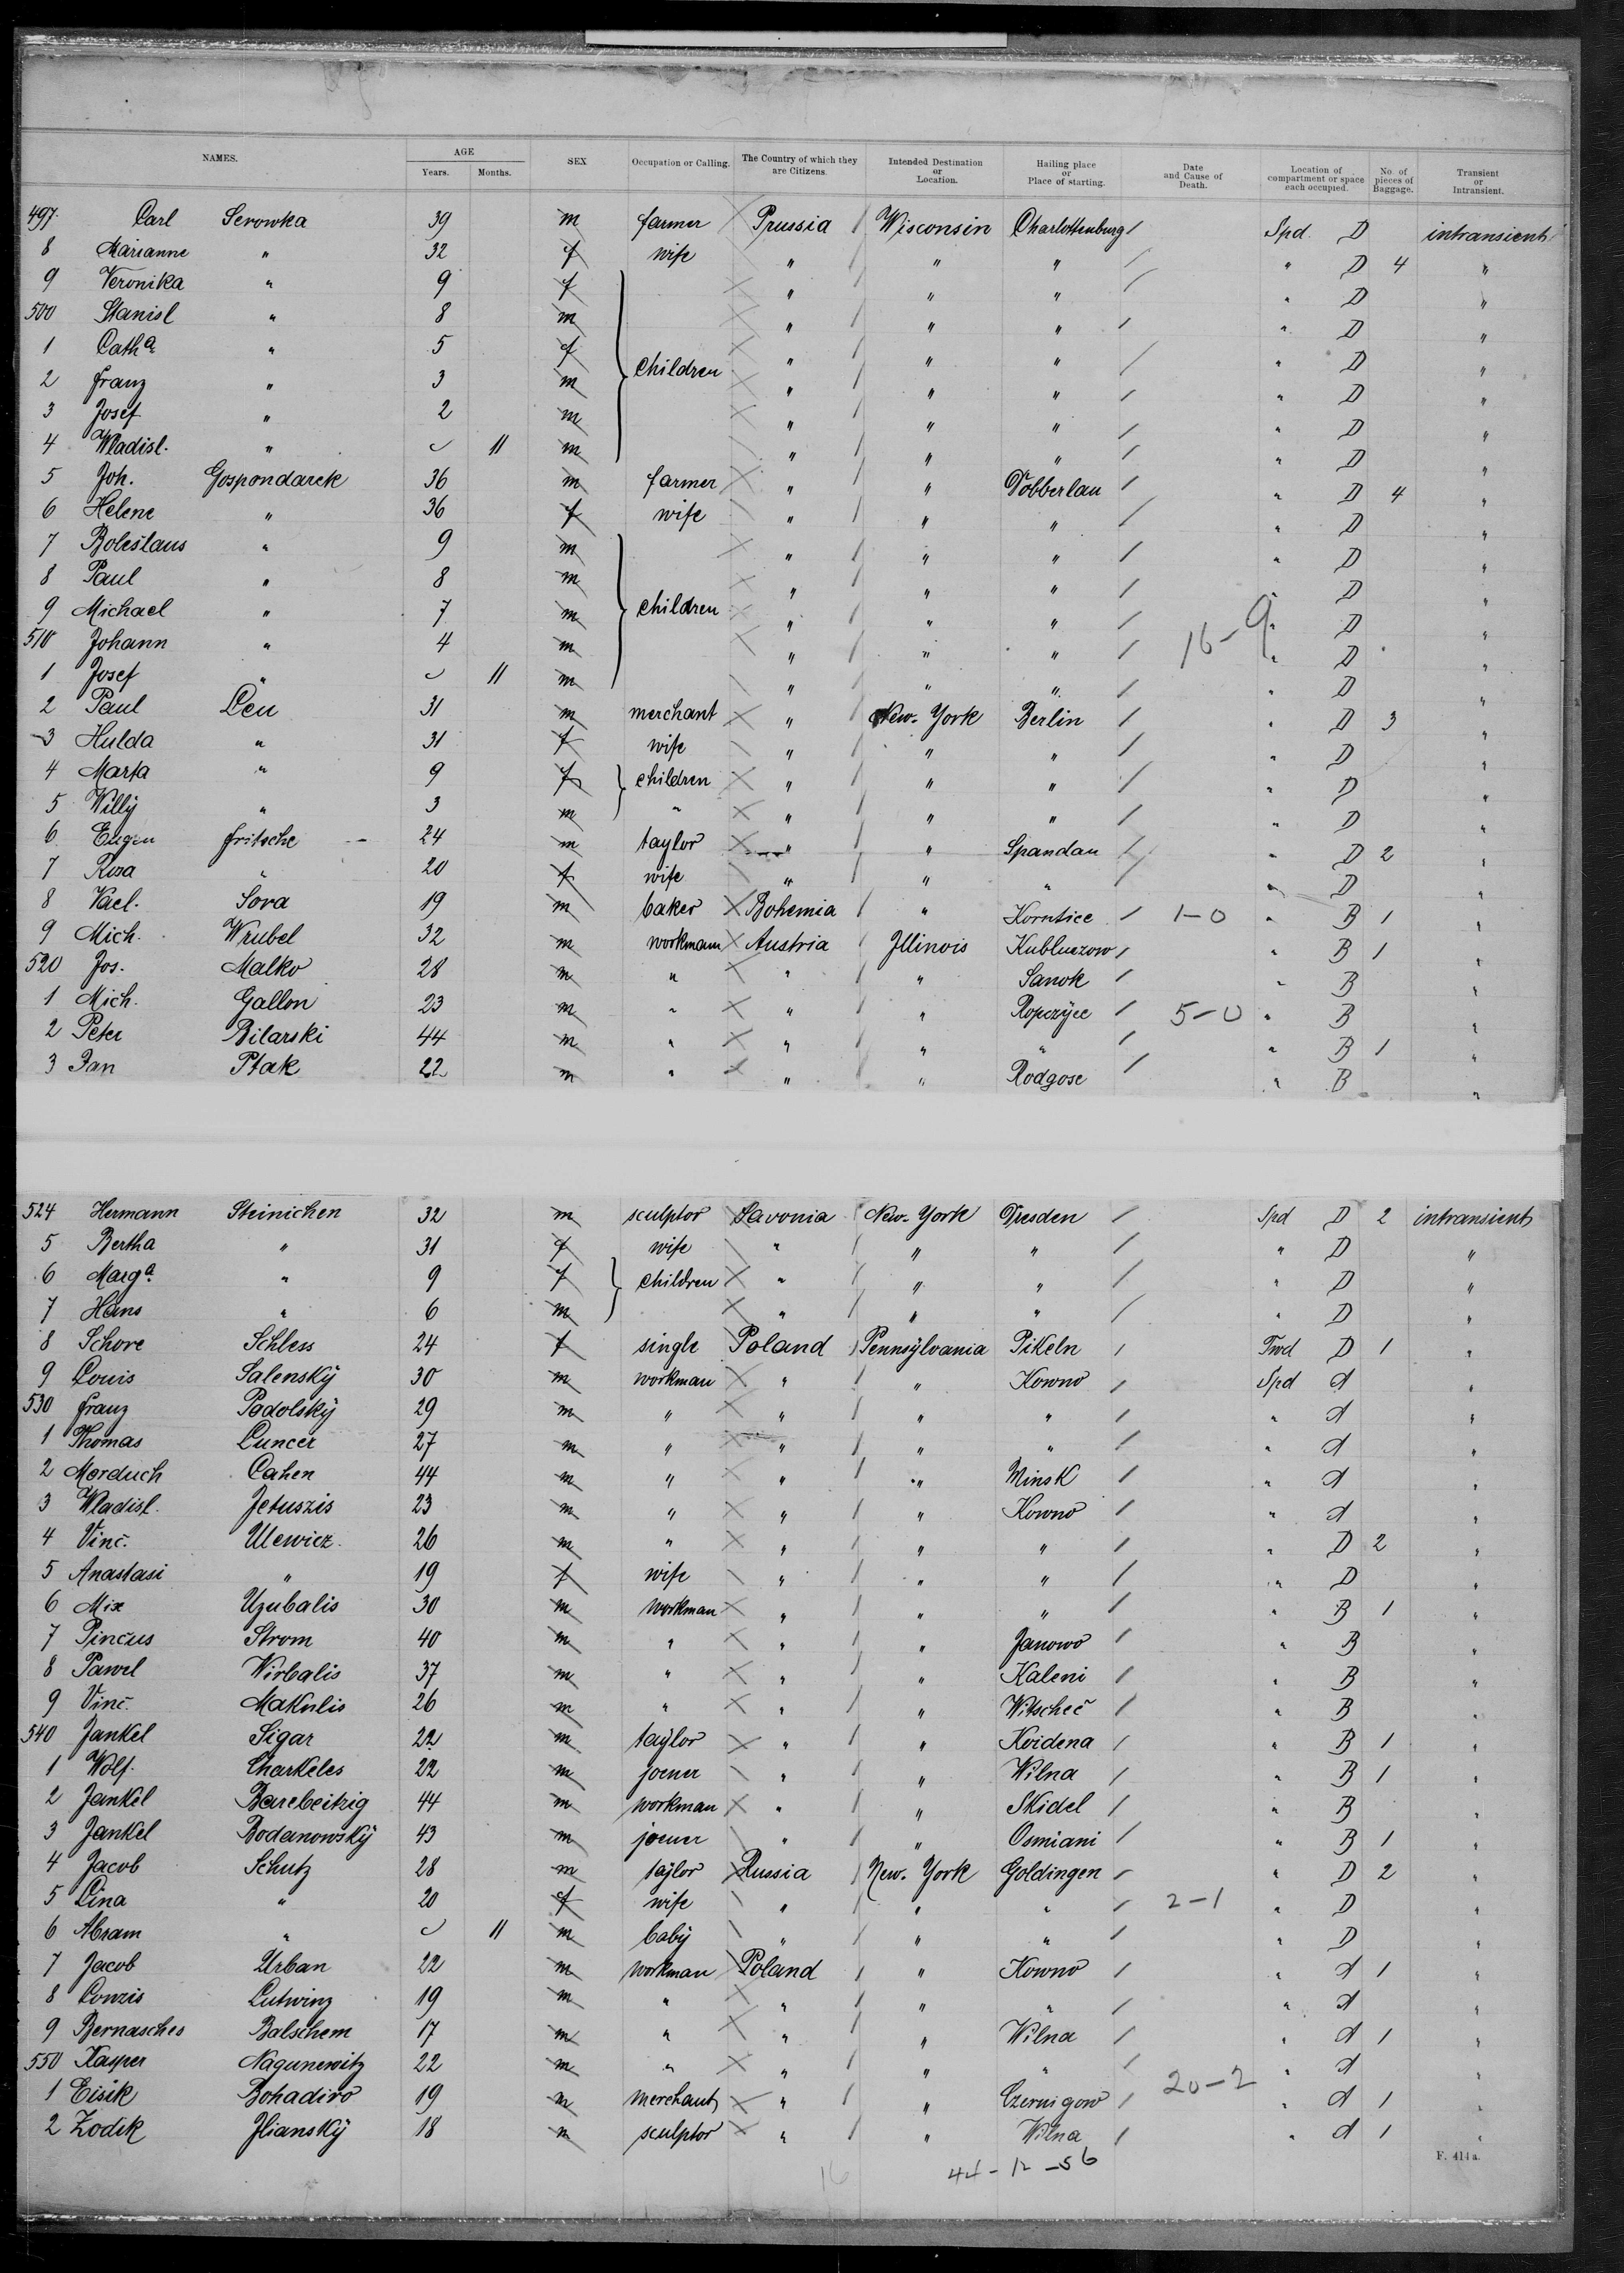 NAMES. AGE Years. Months. SEX Occupation or Calling. The Country of which they are Citizens. Intended Destination or Location. Hailing place or Place of starting. Date and Cause of Death. Location of compartment or space each occupied. No. of pieces of Baggage. Transient or Intransient.
497. Carl Serowka 39 m farmer Prussia Wisconsin Charlottenburg Spd. D intransient
8 Marianne " 32 f wife " " " " D 4 "
9 Veronika " 9 f " " " " D "
500 Stanisl " 8 m " " " " D "
1 Catha " 5 f children " " " " D "
2 Franz " 3 m " " " " D "
3 Josef " 2 m " " " " D "
4 Wladisl. " 11 m " " " " D "
5 Joh. Gospondarek 36 m farmer " " Döbberlau " D 4 "
6 Helene " 36 f wife " " " " D "
7 Boleslaus " 9 m " " " " D "
8 Paul " 8 m " " " " D "
9 Michael " 7 m children " " " 16-9 " D "
510 Johann " 4 m " " " " D "
1 Josef " 11 m " " " " D "
2 Paul Leu 31 m merchant " New-York Berlin " D 3 "
3 Hulda " 31 f wife " " " " D "
4 Marta " 9 f children " " " " D "
5 Willy " 3 m " " " " " D "
6 Eugen Fritsche 24 m taylor " " Spandau " D 2 "
7 Rosa " 20 f wife " " " " D "
8 Vacl. Sova 19 m baker Bohemia " Korntice 1-0 " B 1 "
9 Mich. Wrubel 32 m workmann Austria Illinois Kubluczow " B 1 "
520 Jos. Malko 28 m " " " Sanok " B "
1 Mich. Gallon 23 m " " " Ropczyce 5-0 " B "
2 Peter Bilarski 44 m " " " " " B 1 "
3 Jan Ptak 22 m " " " Rodgose " B "
524 Hermann Steinichen 32 m sculptor Saxonia New-York Dresden Spd D 2 intransient
5 Bertha " 31 f wife " " " " D "
6 Marga " 9 f children " " " " D "
7 Hans " 6 m " " " " D "
8 Schore Schless 24 f single Poland Pennsylvania Pikeln Fwd D 1 "
9 Louis Salensky 30 m workman " " Kowno Spd A "
530 Franz Podolsky 29 m " " " " " A "
1 Thomas Luncer 27 m " " " " " A "
2 Morduch Cahen 44 m " " " Minsk " A "
3 Wladisl. Jetuszis 23 m " " " Kowno " A "
4 Vinc. Ulewicz 26 m " " " " " D 2 "
5 Anastasi " 19 f wife " " " " D "
6 Mix Uzubalis 30 m workman " " " " B 1 "
7 Pincus Strom 40 m " " " Janowo " B "
8 Pawel Wirbalis 37 m " " " Kaleni " B "
9 Vinc. Makulis 26 m " " " Witscheč " B "
540 Jankel Sigar 22 m taylor " " Koidena " B 1 "
1 Wolf Charkeles 22 m joener " " Wilna " B 1 "
2 Jankel Barebeitzig 44 m workman " " Skidel " B "
3 Jankel Bodanowsky 43 m joener " " Osmiani " B 1 "
4 Jacob Schutz 28 m taylor Russia New-York Goldingen " D 2 "
5 Lina " 20 f wife " " " 2-1 " D "
6 Abram " 11 m baby " " " " D "
7 Jacob Urban 22 m workman Poland " Kowno " A 1 "
8 Lonzis Lutwinz 19 m " " " " " A "
9 Bernasches Balschem 17 m " " " Wilna " A 1 "
550 Kasper Nagunewitz 22 m " " " " 20-2 " A "
1 Eisik Bohadiro 19 m merchant " " Czernigow " A 1 "
2 Zodek Jliansky 18 m sculptor " " Wilna " A 1 "
16 44-12-56
F. 414 a.